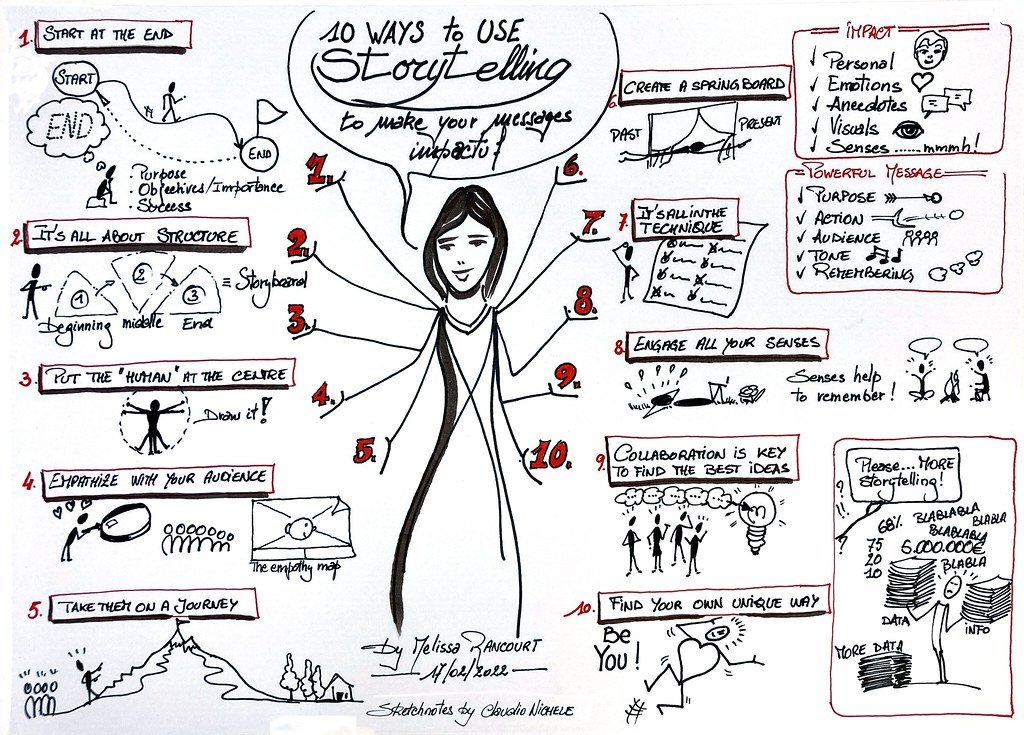 10 WAYS to USE
Storytelling
to make your messages
impactu
1. START AT THE END
START
END
END
. Purpose
. Objectives/Importance
. Success
2. IT'S ALL ABOUT STRUCTURE
1
2
3
= Storyboard
Beginning middle End
3. PUT THE "HUMAN" AT THE CENTRE
Draw it!
4. EMPATHIZE WITH YOUR AUDIENCE
The empathy map
5. TAKE THEM ON A JOURNEY
1.
2.
3.
4.
5.
6.
7.
8.
9.
10.
by Melissa RANCOURT
17/02/2022
Sketchnotes by Claudio NICHELE
6. CREATE A SPRINGBOARD
PAST
PRESENT
7. IT'S ALL IN THE
TECHNIQUE
8. ENGAGE ALL YOUR SENSES
Senses help
to remember!
9. COLLABORATION IS KEY
TO FIND THE BEST IDEAS
10. FIND YOUR OWN UNIQUE WAY
Be
You!
IMPACT
✓ Personal
✓ Emotions
✓ Anecdotes
✓ Visuals
✓ Senses ......mmmh!
POWERFUL MESSAGE
✓ PURPOSE
✓ ACTION
✓ AUDIENCE
✓ TONE
✓ REMEMBERING
Please... MORE
Storytelling!
68% BLABLABLA
BLABLA
BLABLABLA
75 6.000.000€
20 BLABLA
10
DATA
INFO
MORE DATA